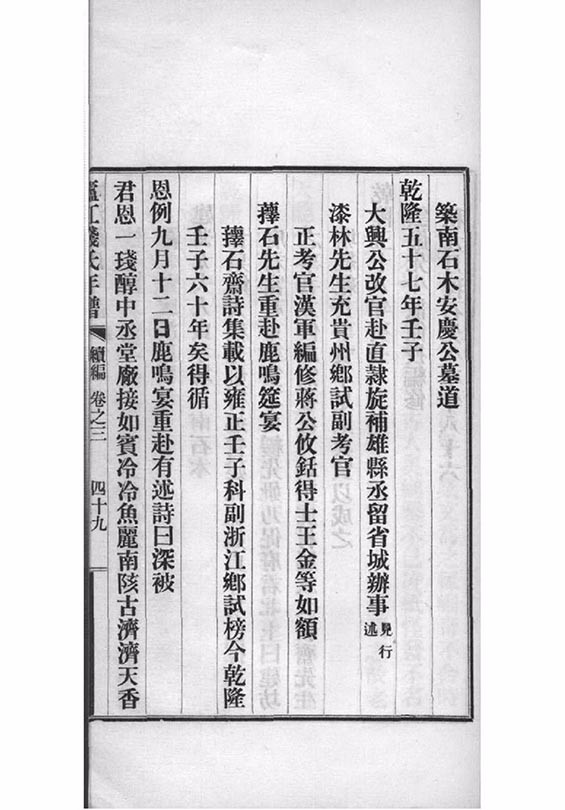 築南石木安慶公墓道
乾隆五十七年壬子
大興公改官赴直隸旋補雄縣丞留省城辦事見行述
漆林先生充貴州鄉試副考官
正考官漢軍編修蔣公攸銛得士王金等如額
蘀石先生重赴鹿鳴筵宴
蘀石齋詩集載以雍正壬子科副浙江鄉試榜今乾隆
壬子六十年矣得循
恩例九月十二日鹿鳴宴重赴有述詩曰深被
君恩一琖醇中丞堂廠接如賓冷冷魚麗南陔古濟濟天香
廬江錢氏年譜 續編 卷之三 四十九